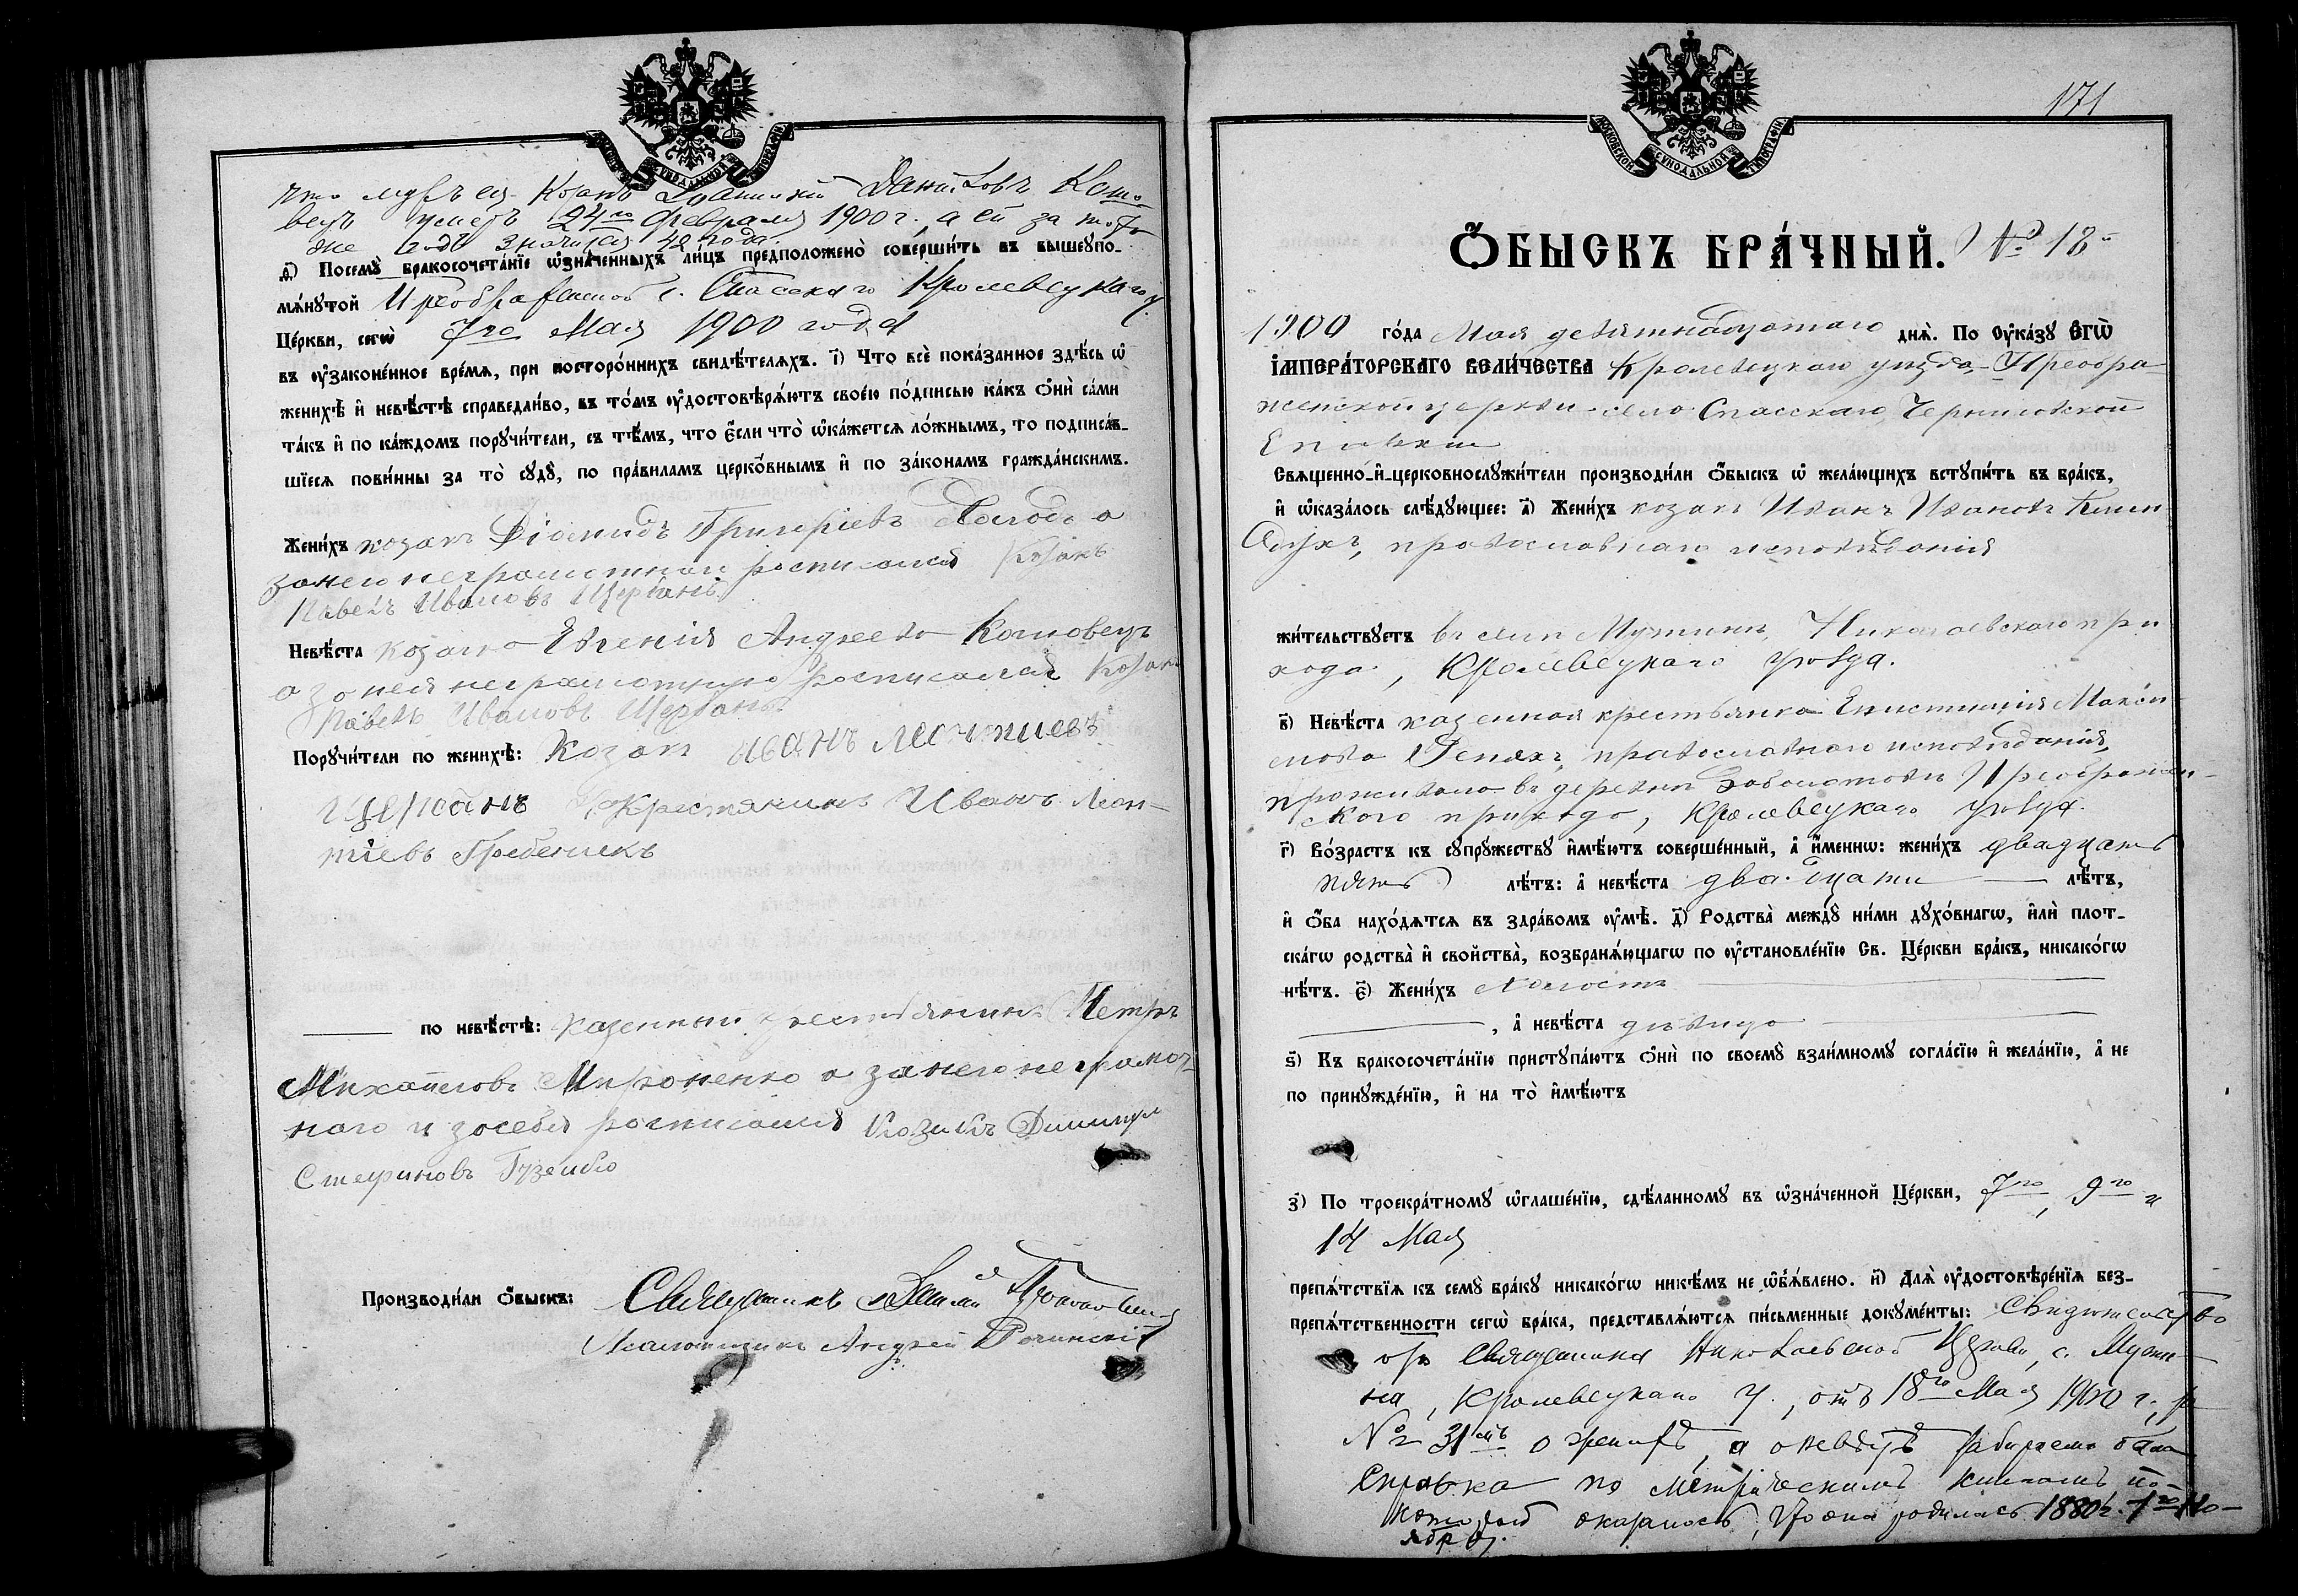 что мужъ ея Козакъ Данииловъ Кото-
вецъ умеръ 24го февраля 1900 г., а ей за тотъ
же годъ значится 42 года.
д҃і) Посемꙋ̀ бракосочета́нїе ѡ҆зна́ченныхъ ли́цъ предположено̀ соверши́ть въ вышеꙋпо-
мѧ́нꙋтой Преображенской с. Спасскаго Кролевецкаго у.
Це́ркви, сегѡ̀ 7го Мая 1900 года
въ ᲂу҆законе́нное вре́мѧ, при посторо́ннихъ свидѣ́телѧхъ. і҃) Что всѐ пока́занное здѣ́сь ѡ҆
женихѣ̀ и҆ невѣ́стѣ справедли́во, въ то́мъ ᲂу҆достовѣрѧ́ютъ свое́ю по́дписью ка́къ ѻ҆нѝ са́ми
та́къ и҆ по ка́ждомъ порꙋчи́тели, съ тѣ́мъ, что є҆́сли что̀ ѡ҆ка́жетсѧ ло́жнымъ, то подписа́в-
шїесѧ пови́нны за то̀ сꙋдꙋ̀, по пра́виламъ церко́внымъ и҆ по зако́намъ гражда́нскимъ.
Жени́хъ козакъ Діомидъ Григоріевъ а
за него неграмотнаго росписался Козакъ
Павелъ Ивановъ Щербань
Невѣ́ста козачка Евгенія Андреева Котовецъ
а за нея неграмотную росписался Козакъ
Павелъ Ивановъ Щербань
Порꙋчи́тели по женихѣ̀: Козак иванъ леонтиевъ
щербанъ Крестянинъ Иванъ Леон-
тіевъ Гребеникъ
по невѣ́стѣ: казенный крестьянинъ Петръ
Михайловъ Мироненко а за него неграмот-
наго и за себя росписался Козакъ Димитрі
Стефановъ Гузенко
Производи́ли ѻ҆́быскъ: Священникъ
Псаломщикъ Андрей
171
Ѻ҆́БЫСКЪ БРА́ЧНЫЙ. № 18
1900 го́да Мая девятнадцатаго днѧ̀. По ᲂу҆ка́зꙋ Є҆гѡ̀
І҆мпера́торскагѡ Вели́чества Кролевецкаго уѣзда, Преобра-
женской церкви села Спасскаго, Черниговской
Епархіи
Свѧще́нно-и҆-церковнослꙋжи́тели производи́ли ѻ҆́быскъ ѡ҆ жела́ющихъ встꙋпи́ть въ бра́къ,
и҆ ѡ҆каза́лось слѣ́дꙋющее: а҃) Жени́хъ козакъ Иванъ Ивановъ
православнаго исповѣданія
жи́тельствꙋетъ въ селѣ Мутинѣ, Николаевскаго при
хода, Кролевецкаго уѣзда.
в҃) Невѣ́ста казенная крестьянка Епистимія Макси
мова православнаго исповѣданія,
проживала въ деревнѣ Заболотовѣ Преображен-
скаго прихода, Кролевецкаго уѣзда.
г҃) Во́зрастъ къ сꙋпрꙋ́жествꙋ и҆мѣ́ютъ соверше́нный, а҆ и҆́меннѡ: жени́хъ двадцать
пять лѣ́тъ: а҆ невѣ́ста двадцати лѣ́тъ,
и҆ ѻ҆́ба нахо́дѧтсѧ въ здра́вомъ ᲂу҆мѣ̀. д҃) Родства̀ междꙋ̀ ни́ми дꙋхо́внагѡ, и҆лѝ плот-
ска́гѡ родства̀ и҆ свойства̀, возбранѧ́ющагѡ по ᲂу҆становле́нїю Св. Це́ркви бра́къ, никако́гѡ
нѣ́тъ. є҃) Жени́хъ Холостъ
, а҆ невѣ́ста дѣвица
ѕ҃) Къ бракосочета́нїю пристꙋпа́ютъ ѻ҆нѝ по своемꙋ̀ взаи́мномꙋ согла́сїю и҆ жела́нїю, а҆ не
по принꙋжде́нїю, и҆ на то̀ и҆мѣ́ютъ
з҃) По троекра́тномꙋ ѡ҆глаше́нїю, сдѣ́ланномꙋ въ ѡ҆зна́ченной Це́ркви, 7го, 9го и
14 Мая
препѧ́тствїѧ къ семꙋ̀ бра́кꙋ никако́гѡ никѣ́мъ не ѡ҆б̾ѧ́влено. и҃) Длѧ̀ ᲂу҆достовѣре́нїѧ без-
препѧ́тственности сегѡ̀ бра́ка, представлѧ́ютсѧ пи́сьменные докꙋме́нты: Свидѣтельство
отъ священника Николаевской Церкви, с. Мути-
на, Кролевецкаго у., отъ 18го Мая 1900 г., за
№ 31мъ о женихѣ, а о невѣстѣ
Справка по метрическимъ книгамъ по
которой оказалось, что она родилась 1880 г. 1го Но-
ября.